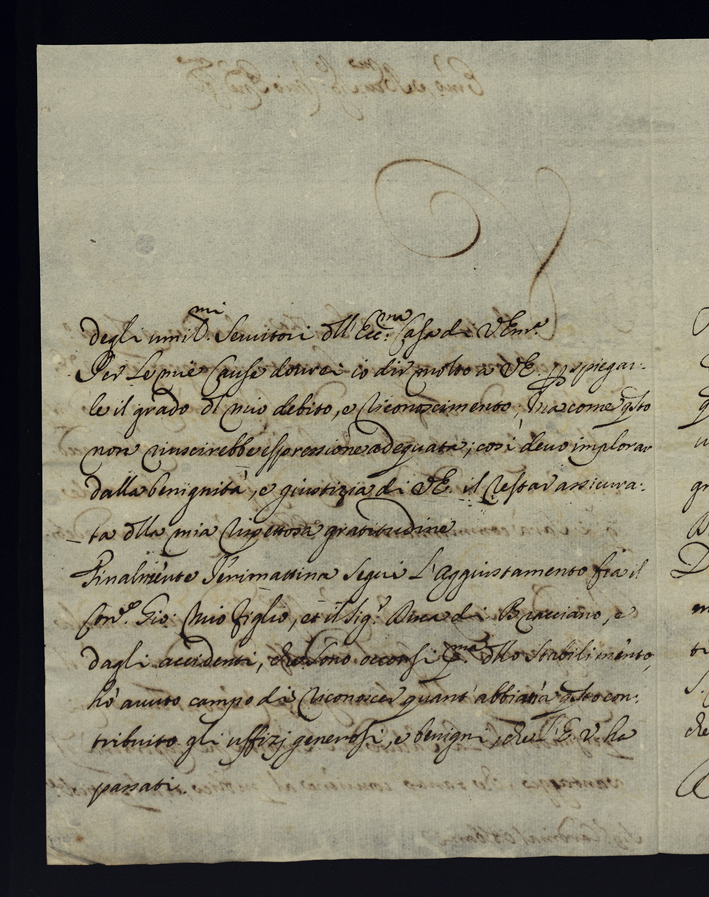 degli umil.mi Servitori dll' Ecc.ma Casa di V Em.a
Per le mie Cause dovrei io dir molto a VE. p spiegar-
le il grado dl mio debito, e riconoscimento, Ma come qsto
non riuscirebbe espressione adequata; così devo implorar
dalla benignità, e giustizia di VE il restar assicura-
ta dlla mia rispettosa gratitudine
Finalmente Jerimattina seguì l'aggiustamento fra il
Gio: mio figlio, et il Sig.r Duca di Bracciano, e
dagli accidenti, che sono occorsi p.ma dllo Stabilimento,
hò avuto campo di riconoscer quant' abbiana a qsto con-
tribuito gli uffizj generosi, e benigni, che l' E. V. ha
passati